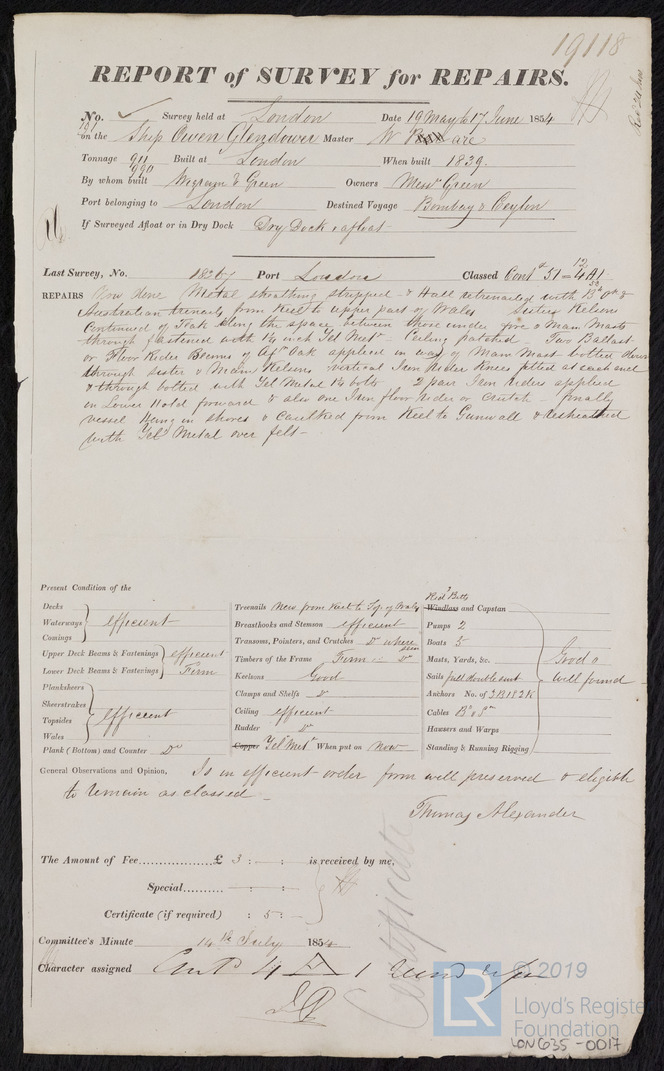 19118
REPORT of SURVEY for REPAIRS.
No. Survey held at London Date 19 May to 17 June 1854
on the Ship Owen Glendower Master W
Tonnage 911 Built at London When built 1839
990
By whom built Wigram & Green Owners Messrs Green
Port belonging to London Destined Voyage Bombay & Ceylon
If Surveyed Afloat or in Dry Dock Dry Dock & afloat
Last Survey, No. Port London Classed Contd 51 = 4 A1
REPAIRS Now done Metal sheathing stripped & Hull retrenailed with
Australian trenails from Keel to upper part of Wales Sister Kelsons
Continued of Teak along the space between those under fore & Main Masts
through fastened with 1¼ inch Yel Metl Ceiling patched Two Ballast
or Floor Rider Beams of Afn Oak applied in way of Main Mast bolted down
through sister & Main Kelsons, vertical Iron Rider Knees fitted at each end
& through bolted with Yel Metal 1¼ bolts 2 pair Iron Riders applied
in Lower Hold forward & also one Iron floor Rider or Crutch finally
vessel hung in shores & caulked from Keel to Gunwall & resheathed
with Yel Metal over felt
Present Condition of the
Decks
Waterways efficient
Comings
Upper Deck Beams & Fastenings efficient
Lower Deck Beams & Fastenings Firm
Planksheers
Sheerstrakes
Topsides efficient
Wales
Plank (Bottom) and Counter Do
Treenails New from Keel to Top of Wales
Breasthooks and Stemson efficient
Transoms, Pointers, and Crutches Do where seen
Timbers of the Frame Firm Do
Keelsons Good
Clamps and Shelfs Do
Ceiling efficient
Rudder Do
Copper Yel Metl When put on Now
Ridg Bitts
Windlass and Capstan
Pumps 2
Boats 5
Masts, Yards, &c. Good &
Sails full double suit well found
Anchors No. of 3B 1S 2K
Cables
Hawsers and Warps
Standing & Running Rigging
General Observations and Opinion, Is in efficient order form well preserved & eligible
to remain as classed
Thomas Alexander
The Amount of Fee £ 3 : - : is received by me,
Special
Certificate (if required) : 5 : -
Certificate
Committee's Minute 14th July 1854
Character assigned Contd 4 1
© 2019
LR
Lloyd's Register
Foundation
LON635-0017